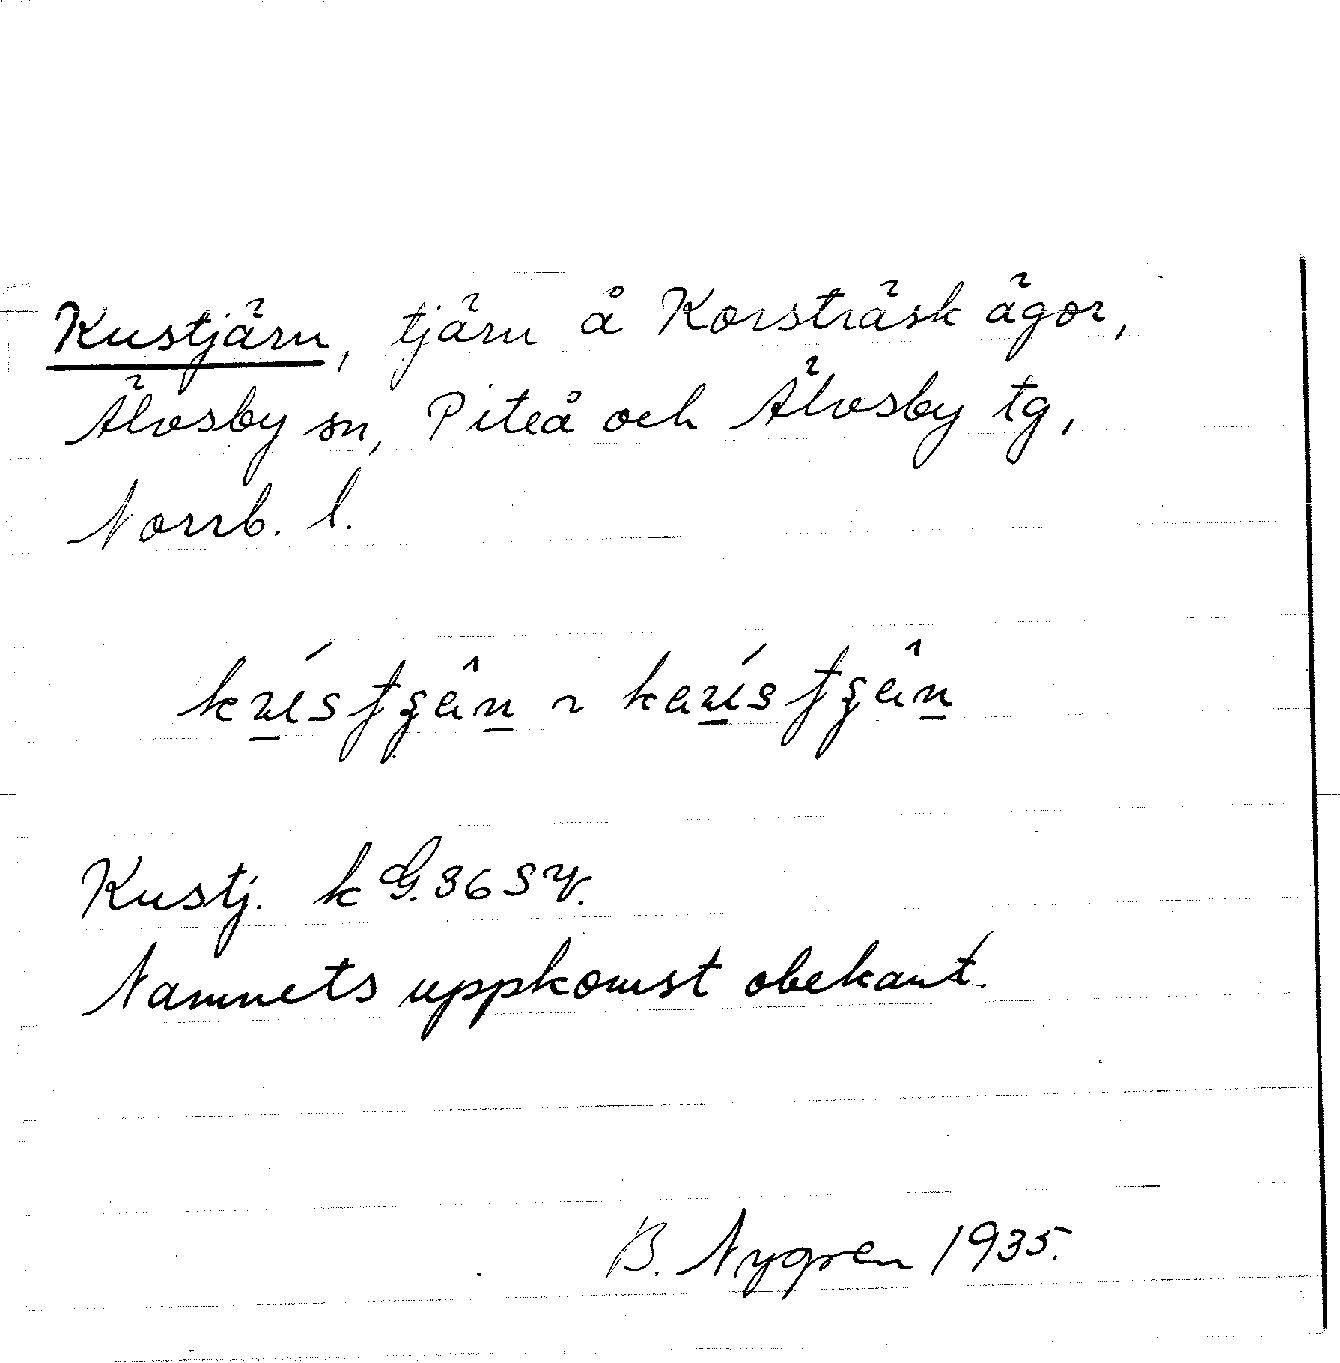 Kustjärn, tjärn å Korsträsk ägor,
Älvsby sn, Piteå och Älvsby tg,
Norrb. l.
Kustj. k G. 36 SV.
Namnets uppkomst obekant.
B. Nygren 1935.